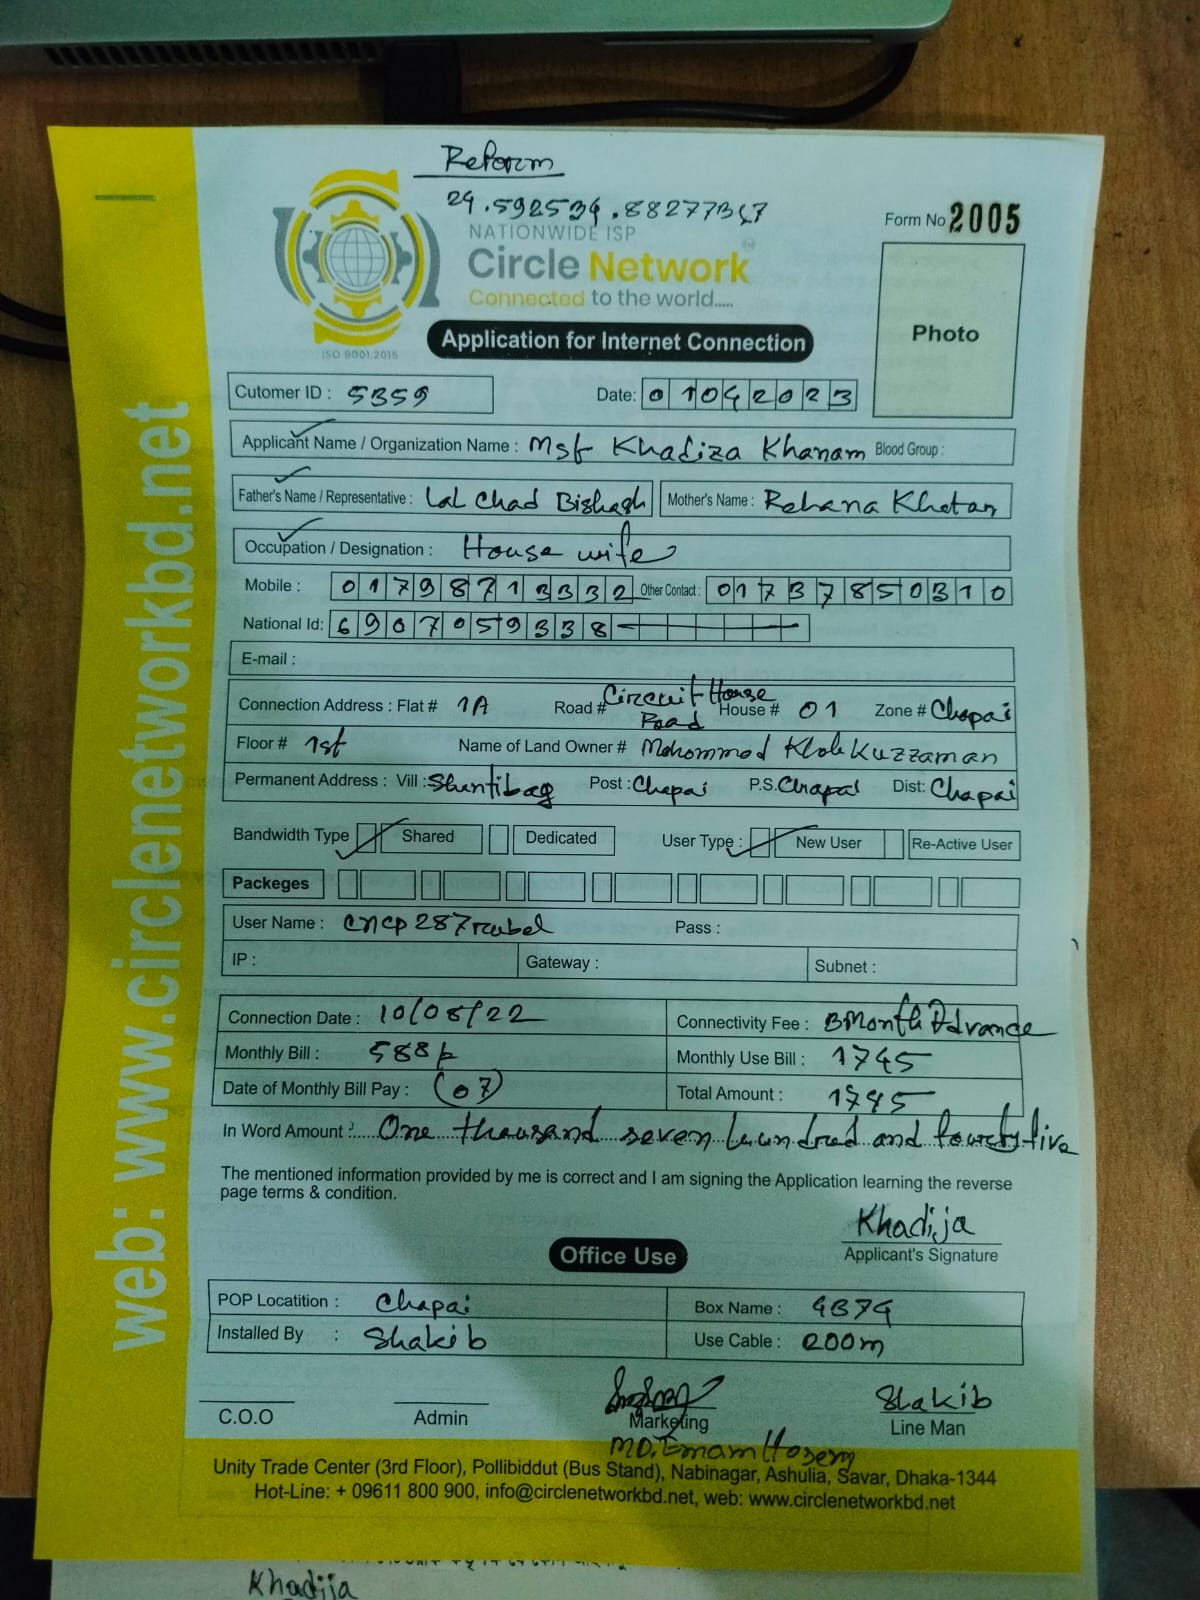 Reform
24.592534.88277347
Form No 2005
NATIONWIDE ISP
Circle Network
Connected to the world.....
ISO 9001:2015
Application for Internet Connection
Photo
Cutomer ID : 5359 Date: 01042023
Applicant Name / Organization Name : Mst Khadiza Khanam Blood Group :
Father's Name / Representative : Lal Chad Bishash Mother's Name : Rehana Khatan
Occupation / Designation : House wife
Mobile : 01798713332 Other Contact : 01737850310
National Id: 6907059338
E-mail :
Connection Address : Flat # 1A Road # Circuit House Road House # 01 Zone # Chapai
Floor # 1st Name of Land Owner # Mohommod Khalekuzzaman
Permanent Address : Vill : Shantibag Post : Chapai P.S. Chapai Dist: Chapai
Bandwidth Type Shared Dedicated User Type : New User Re-Active User
Packeges
User Name : cncp287rubel Pass :
IP : Gateway : Subnet :
Connection Date : 10/08/22 Connectivity Fee : 3Month Advance
Monthly Bill : 588 Monthly Use Bill : 1745
Date of Monthly Bill Pay : (07) Total Amount : 1745
In Word Amount : One thousand seven hundred and fourty five
The mentioned information provided by me is correct and I am signing the Application learning the reverse
page terms & condition.
Khadija
Applicant's Signature
Office Use
POP Locatition : Chapai Box Name : 4374
Installed By : Shakib Use Cable : 200m
Shakib
C.O.O Admin Marketing Line Man
MD. Emam Hosen
Unity Trade Center (3rd Floor), Pollibiddut (Bus Stand), Nabinagar, Ashulia, Savar, Dhaka-1344
Hot-Line: + 09611 800 900, info@circlenetworkbd.net, web: www.circlenetworkbd.net
web: www.circlenetworkbd.net
Khadija